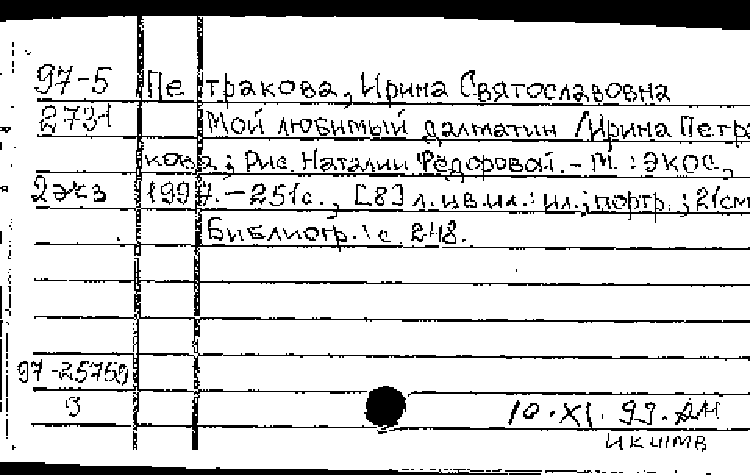 97-5 Петракова, Ирина Святославовна
2731 Мой любимый далматин / Ирина Петра-
кова; Рис. Наталии Фёдоровой. - М. : ЭКОС,
2 экз 1997. - 251 с., [8] л. цв. ил. : ил.; портр. ; 21 см
Библиогр.: с 248.
97-25759
9
10.XI.99.